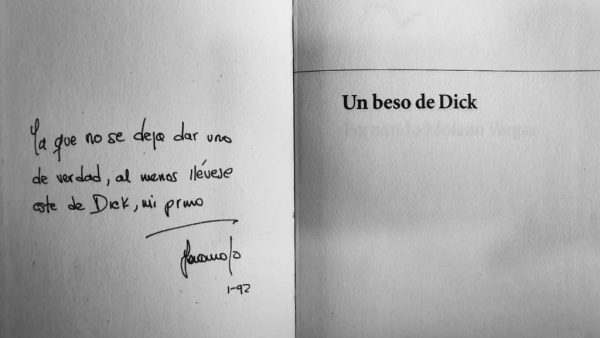 Ya que no se deja dar uno
de verdad, al menos llévese
este de Dick, mi primo
1-92
Un beso de Dick
Fernando Molano Vargas